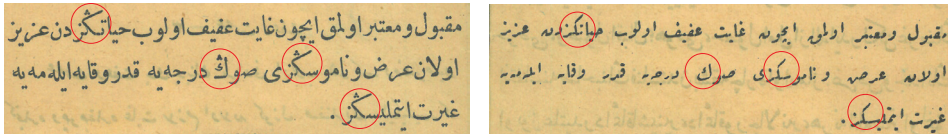 مقبول و معتبر اولمق ایچون غایت عفیف اولوب حیاتڭزدن عزیز
اولان عرض و ناموسڭزی صوڭ درجه‌یه قدر وقایه ایله‌مه‌یه
غیرت ایتملیسڭز .
مقبول و معتبر اولمق ایچون غایت عفیف اولوب حیاتكزدن عزیز
اولان عرض و ناموسكزی صوك درجه‌یه قدر وقایه ایله‌مه‌یه
غیرت ایتملیسكز .